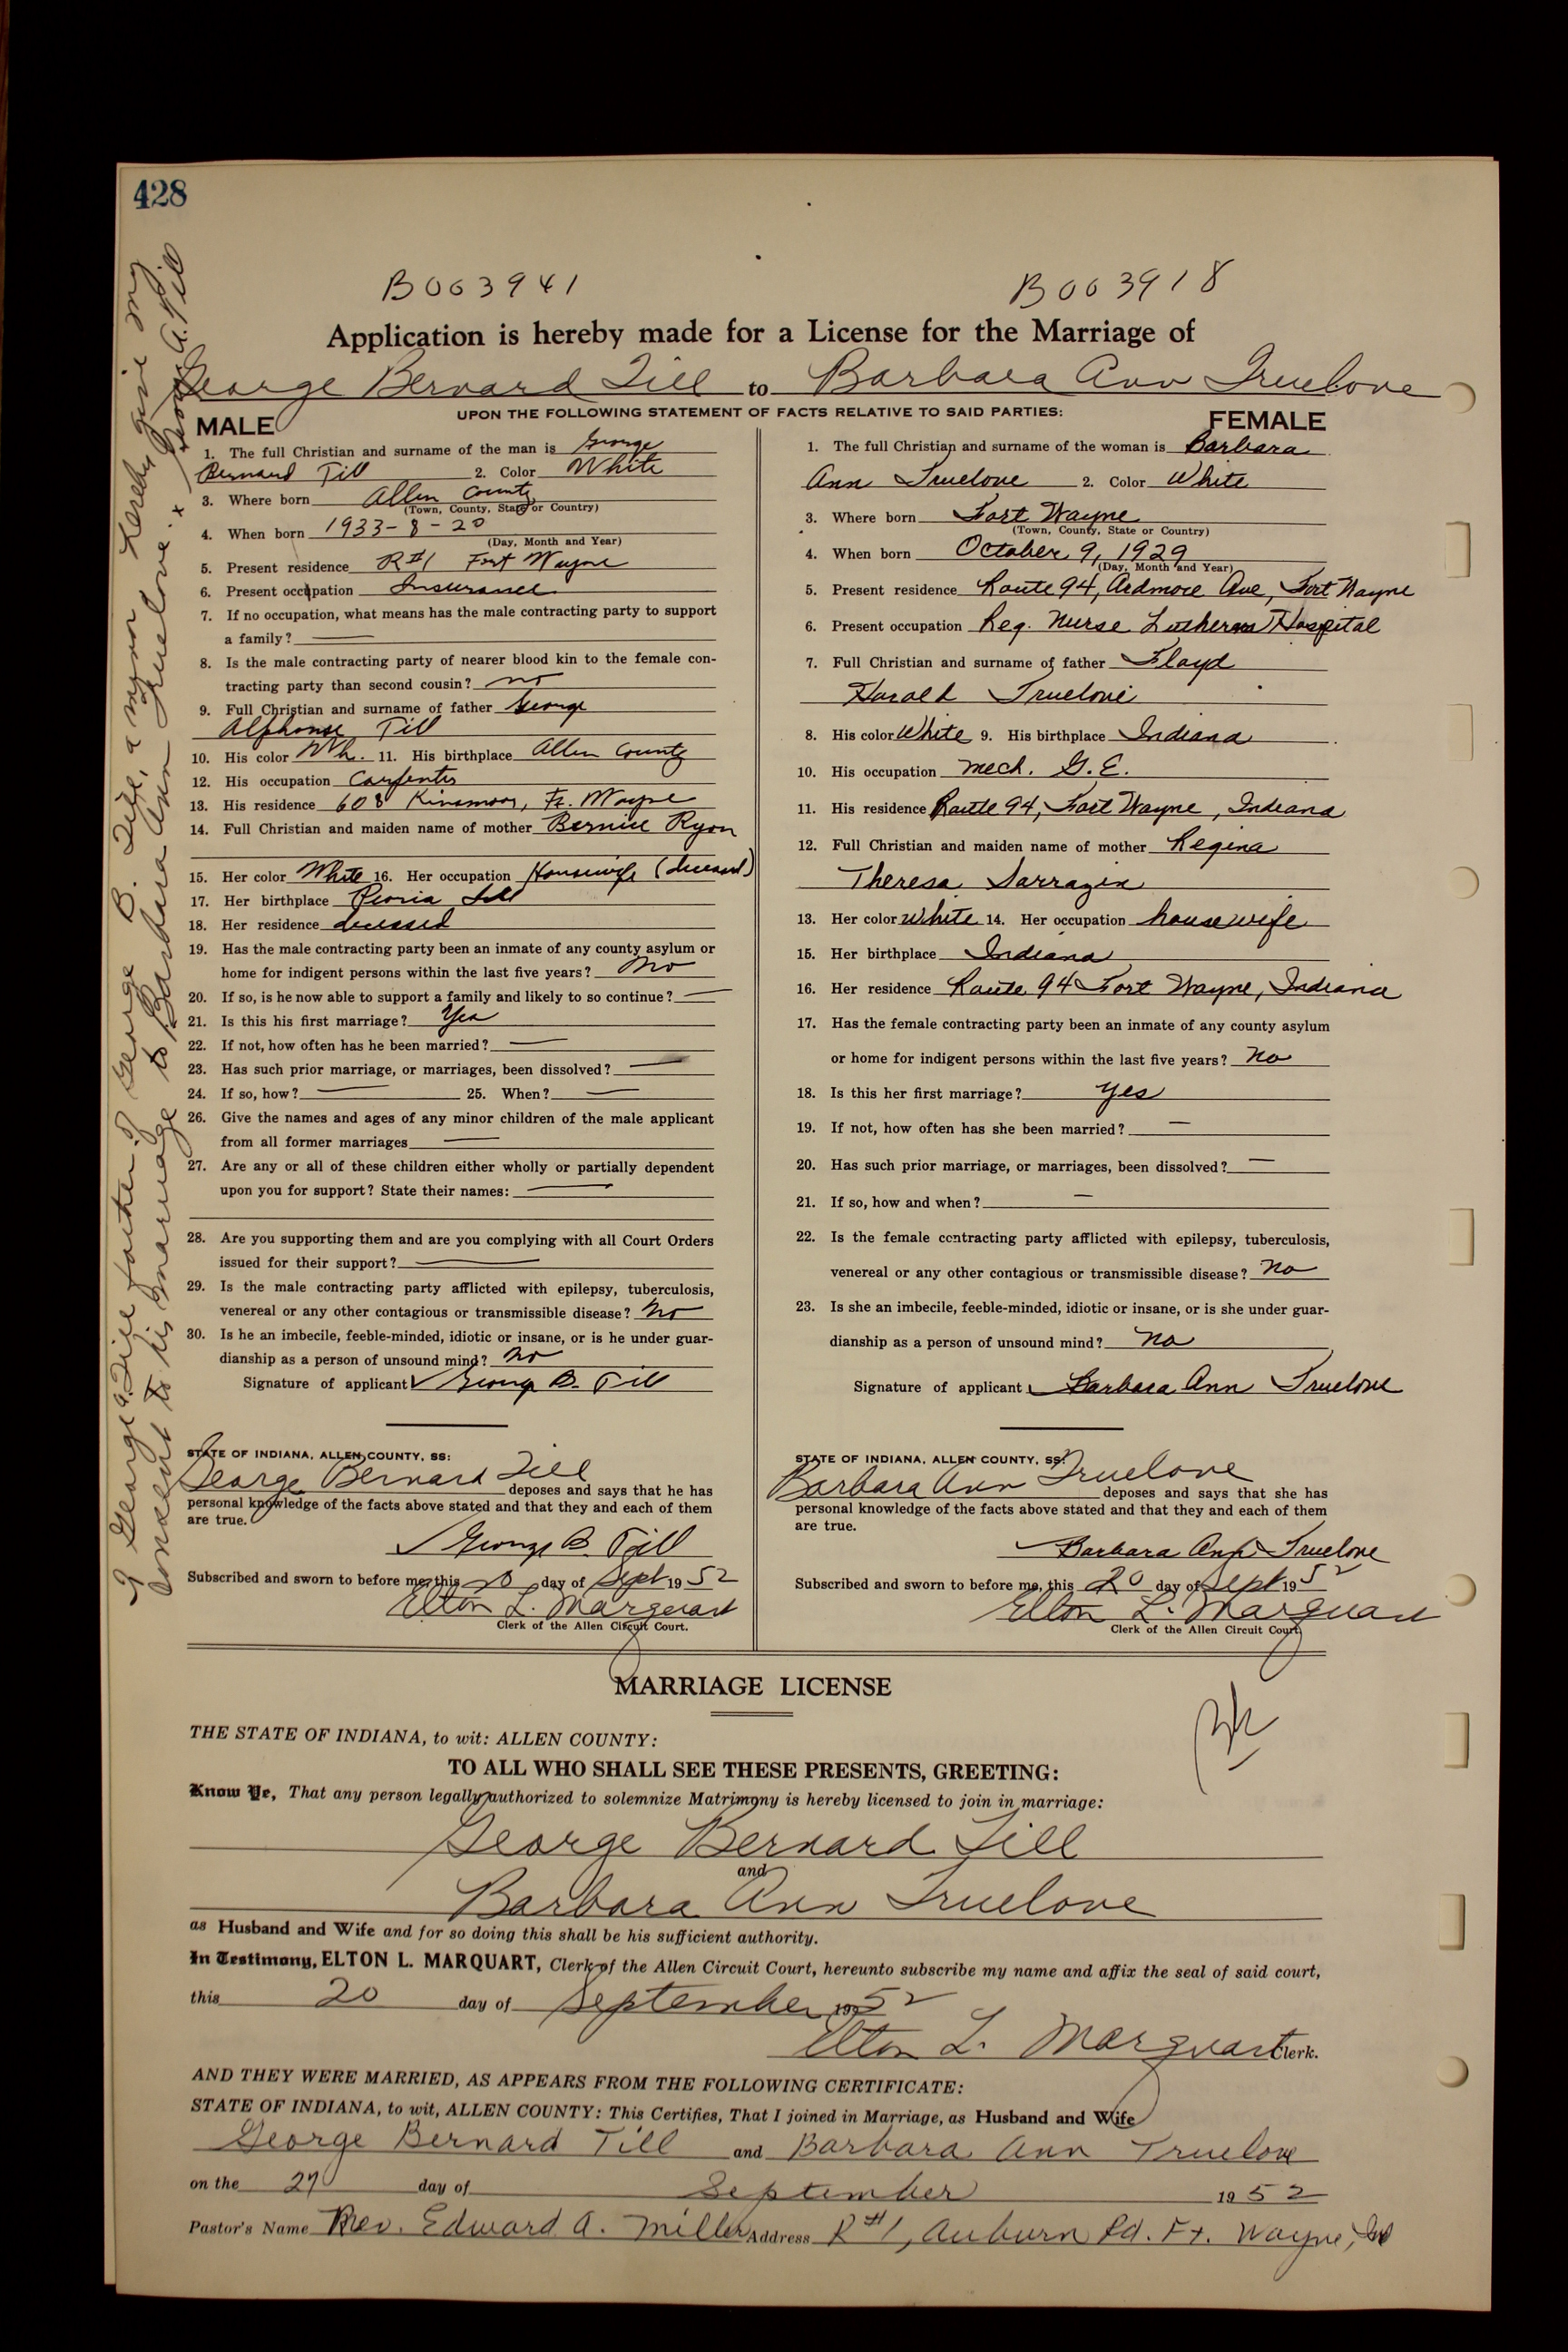 428
B003941
B003918
Application is hereby made for a License for the Marriage of
George Bernard Till to Barbara Ann Truelove
UPON THE FOLLOWING STATEMENT OF FACTS RELATIVE TO SAID PARTIES:
MALE
1. The full Christian and surname of the man is George
Bernard Till 2. Color White
3. Where born Allen County
(Town, County, State or Country)
4. When born 1933-8-20
(Day, Month and Year)
5. Present residence R#1 Fort Wayne
6. Present occupation Insurance
7. If no occupation, what means has the male contracting party to support
a family? —
8. Is the male contracting party of nearer blood kin to the female con-
tracting party than second cousin? no
9. Full Christian and surname of father George
Alphonse Till
10. His color Wh. 11. His birthplace Allen County
12. His occupation Carpenter
13. His residence 608 Kinsmoor, Ft. Wayne
14. Full Christian and maiden name of mother Bernice Ryon
15. Her color White 16. Her occupation Housewife (deceased)
17. Her birthplace Peoria Ill
18. Her residence deceased
19. Has the male contracting party been an inmate of any county asylum or
home for indigent persons within the last five years? No
20. If so, is he now able to support a family and likely to so continue? —
21. Is this his first marriage? Yes
22. If not, how often has he been married? —
23. Has such prior marriage, or marriages, been dissolved? —
24. If so, how? — 25. When? —
26. Give the names and ages of any minor children of the male applicant
from all former marriages —
27. Are any or all of these children either wholly or partially dependent
upon you for support? State their names: —
28. Are you supporting them and are you complying with all Court Orders
issued for their support? —
29. Is the male contracting party afflicted with epilepsy, tuberculosis,
venereal or any other contagious or transmissible disease? No
30. Is he an imbecile, feeble-minded, idiotic or insane, or is he under guar-
dianship as a person of unsound mind? No
Signature of applicant George B. Till
STATE OF INDIANA, ALLEN COUNTY, SS:
George Bernard Till deposes and says that he has
personal knowledge of the facts above stated and that they and each of them
are true.
George B. Till
Subscribed and sworn to before me, this 20 day of Sept 1952
Elton L. Marquart
Clerk of the Allen Circuit Court.
FEMALE
1. The full Christian and surname of the woman is Barbara
Ann Truelove 2. Color White
3. Where born Fort Wayne
(Town, County, State or Country)
4. When born October 9, 1929
(Day, Month and Year)
5. Present residence Route 94, Ardmore Ave, Fort Wayne
6. Present occupation Reg. Nurse Lutheran Hospital
7. Full Christian and surname of father Floyd
Harold Truelove
8. His color White 9. His birthplace Indiana
10. His occupation Mech. G.E.
11. His residence Route 94, Fort Wayne, Indiana
12. Full Christian and maiden name of mother Regina
Theresa Sarrazin
13. Her color White 14. Her occupation housewife
15. Her birthplace Indiana
16. Her residence Route 94 Fort Wayne, Indiana
17. Has the female contracting party been an inmate of any county asylum
or home for indigent persons within the last five years? no
18. Is this her first marriage? yes
19. If not, how often has she been married? —
20. Has such prior marriage, or marriages, been dissolved? —
21. If so, how and when? —
22. Is the female contracting party afflicted with epilepsy, tuberculosis,
venereal or any other contagious or transmissible disease? no
23. Is she an imbecile, feeble-minded, idiotic or insane, or is she under guar-
dianship as a person of unsound mind? no
Signature of applicant Barbara Ann Truelove
STATE OF INDIANA, ALLEN COUNTY, SS:
Barbara Ann Truelove deposes and says that she has
personal knowledge of the facts above stated and that they and each of them
are true.
Barbara Ann Truelove
Subscribed and sworn to before me, this 20 day of Sept 1952
Elton L. Marquart
Clerk of the Allen Circuit Court
I George A. Till father of George B. Till, a minor hereby give my
consent to his marriage to Barbara Ann Truelove. x George A. Till
MARRIAGE LICENSE
THE STATE OF INDIANA, to wit: ALLEN COUNTY:
TO ALL WHO SHALL SEE THESE PRESENTS, GREETING:
Know Ye, That any person legally authorized to solemnize Matrimony is hereby licensed to join in marriage:
George Bernard Till
and
Barbara Ann Truelove
as Husband and Wife and for so doing this shall be his sufficient authority.
In Testimony, ELTON L. MARQUART, Clerk of the Allen Circuit Court, hereunto subscribe my name and affix the seal of said court,
this 20 day of September 1952
Elton L. Marquart Clerk.
AND THEY WERE MARRIED, AS APPEARS FROM THE FOLLOWING CERTIFICATE:
STATE OF INDIANA, to wit, ALLEN COUNTY: This Certifies, That I joined in Marriage, as Husband and Wife
George Bernard Till and Barbara Ann Truelove
on the 27 day of September 1952
Pastor's Name Rev. Edward A. Miller Address R#1, Auburn Rd. Ft. Wayne, Ind